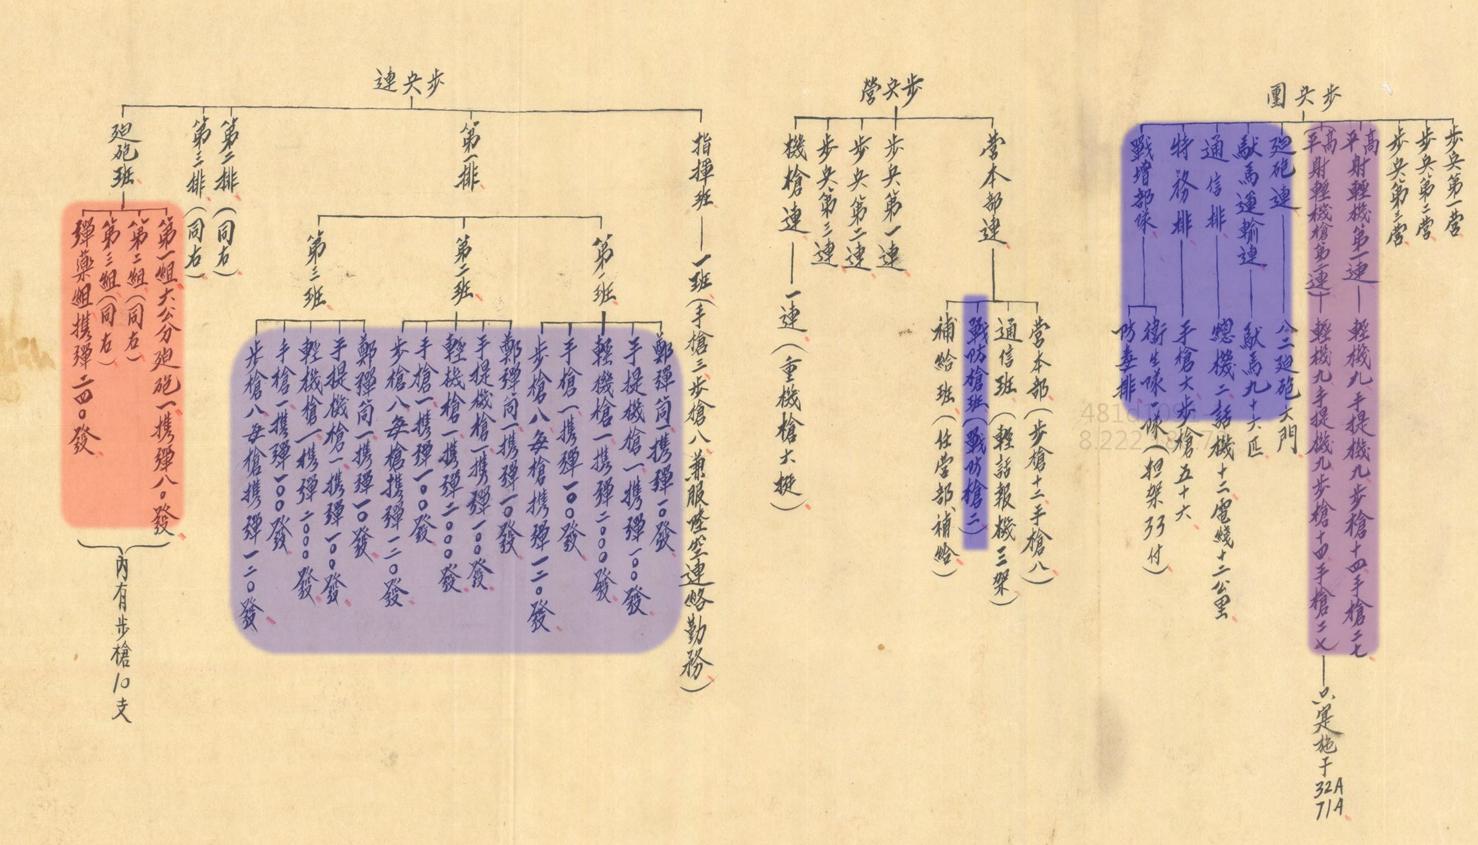 步兵團
步兵第一營
步兵第二營
步兵第三營
高平射輕機槍第一連
輕機九手提機九步槍十四手槍二七
高平射輕機槍第二連
輕機九手提機九步槍十四手槍二七
只定施于
32A
71A
廹砲連
八二廹砲六門
馱馬運輸連
馱馬九十六匹
通信排
總機二話機十二電綫十二公里
特務排
手槍六步槍五十六
戰增部隊
衛生隊一隊(担架𢎞付)
防毒排
步兵營
營本部連
營本部(步槍十二手槍八)
通信班(輕話報機三架)
戰防槍班(戰防槍二)
補給班(任營部補給)
步兵第一連
步兵第二連
步兵第三連
機槍連
一連(重機槍六挺)
步兵連
指揮班
一班(手槍三步槍八兼服陸空連絡勤務)
第一排
第一班
擲彈筒一携彈一0發
手提機槍一携彈一00發
輕機槍一携彈二000發
手槍一携彈一00發
步槍八每槍携彈一二0發
第二班
擲彈筒一携彈一0發
手提機槍一携彈一00發
輕機槍一携彈二000發
手槍一携彈一00發
步槍八每槍携彈一二0發
第三班
擲彈筒一携彈一0發
手提機槍一携彈一00發
輕機槍一携彈二000發
手槍一携彈一00發
步槍八每槍携彈一二0發
第二排(同右)
第三排(同右)
廹砲班
第一組六公分廹砲一携彈八0發
第二組(同右)
第三組(同右)
彈藥組携彈二四0發
內有步槍10支